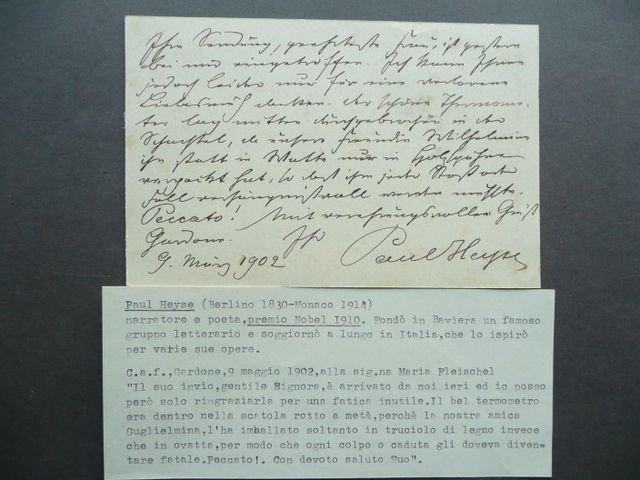 Ihre Sendung, geehrteste Frau, ist gestern
bei uns eingetroffen. Ich kann Ihnen
jedoch leider nur für eine verlorene
Liebesmüh danken. Der schöne Thermome-
ter lag mitten durchgebrochen in der
Schachtel, da unsere Freundin Wilhelmine
ihn statt in Watte nur in Holzspähne
verpackt hat, so daß ihm jeder Stoß oder
Fall verhängnißvoll werden mußte.
Peccato! Mit verehrungsvollem Gruß
Gardone. Ihr
9. März 1902 Paul Heyse
Paul Heyse (Berlino 1830-Monaco 1914)
narratore e poeta,premio Nobel I910. Fondò in Baviera un famoso
gruppo letterario e soggiornò a lungo in Italia,che lo ispirò
per varie sue opere.
C.a.f.,Gardone,9 maggio 1902,alla sig.na Maria Fleischel
"Il suo invio,gentile Signora,è arrivato da noi ieri ed io posso
però solo ringraziarla per una fatica inutile.Il bel termometro
era dentro nella scatola rotto a metà,perchè la nostra amica
Guglielmina,l'ha imballato soltanto in truciolo di legno invece
che in ovatta,per modo che ogni colpo o caduta gli doveva diven=
tare fatale.Peccato!. Con devoto saluto Suo".